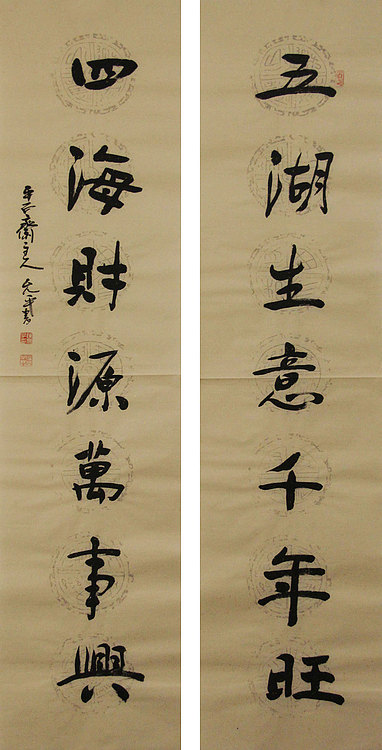 五湖生意千年旺
四海財源萬事興
齋主人